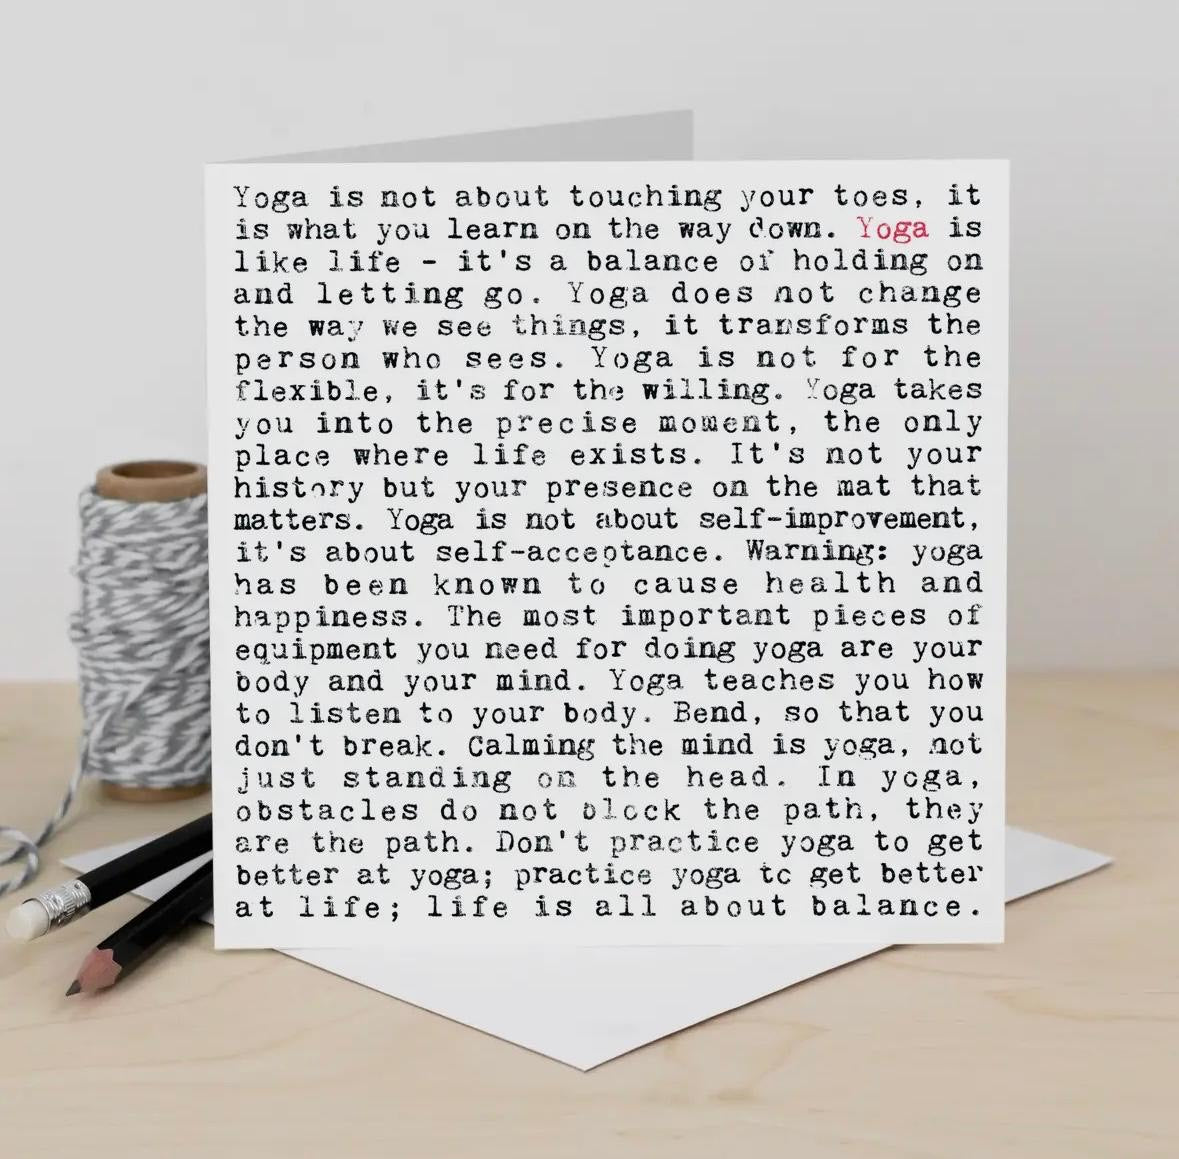 Yoga is not about touching your toes, it
is what you learn on the way down. Yoga is
like life - it's a balance of holding on
and letting go. Yoga does not change
the way we see things, it transforms the
person who sees. Yoga is not for the
flexible, it's for the willing. Yoga takes
you into the precise moment, the only
place where life exists. It's not your
history but your presence on the mat that
matters. Yoga is not about self-improvement,
it's about self-acceptance. Warning: yoga
has been known to cause health and
happiness. The most important pieces of
equipment you need for doing yoga are your
body and your mind. Yoga teaches you how
to listen to your body. Bend, so that you
don't break. Calming the mind is yoga, not
just standing on the head. In yoga,
obstacles do not block the path, they
are the path. Don't practice yoga to get
better at yoga; practice yoga to get better
at life; life is all about balance.